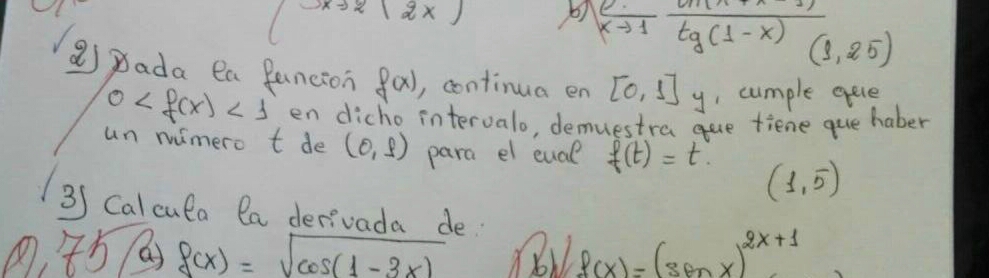 x→2 ( 2x )
b) x→1 tg(1-x) (1,25)
2) Dada la función f(x), continua en [0,1] y, cumple que
0 < f(x) < 1 en dicho intervalo, demuestra que tiene que haber
un número t de (0,1) para el cual f(t) = t.
(1,5)
3) Calcula la derivada de:
0,75 a) f(x) = √cos(1-3x) b) f(x) = (sen x)^2x+1